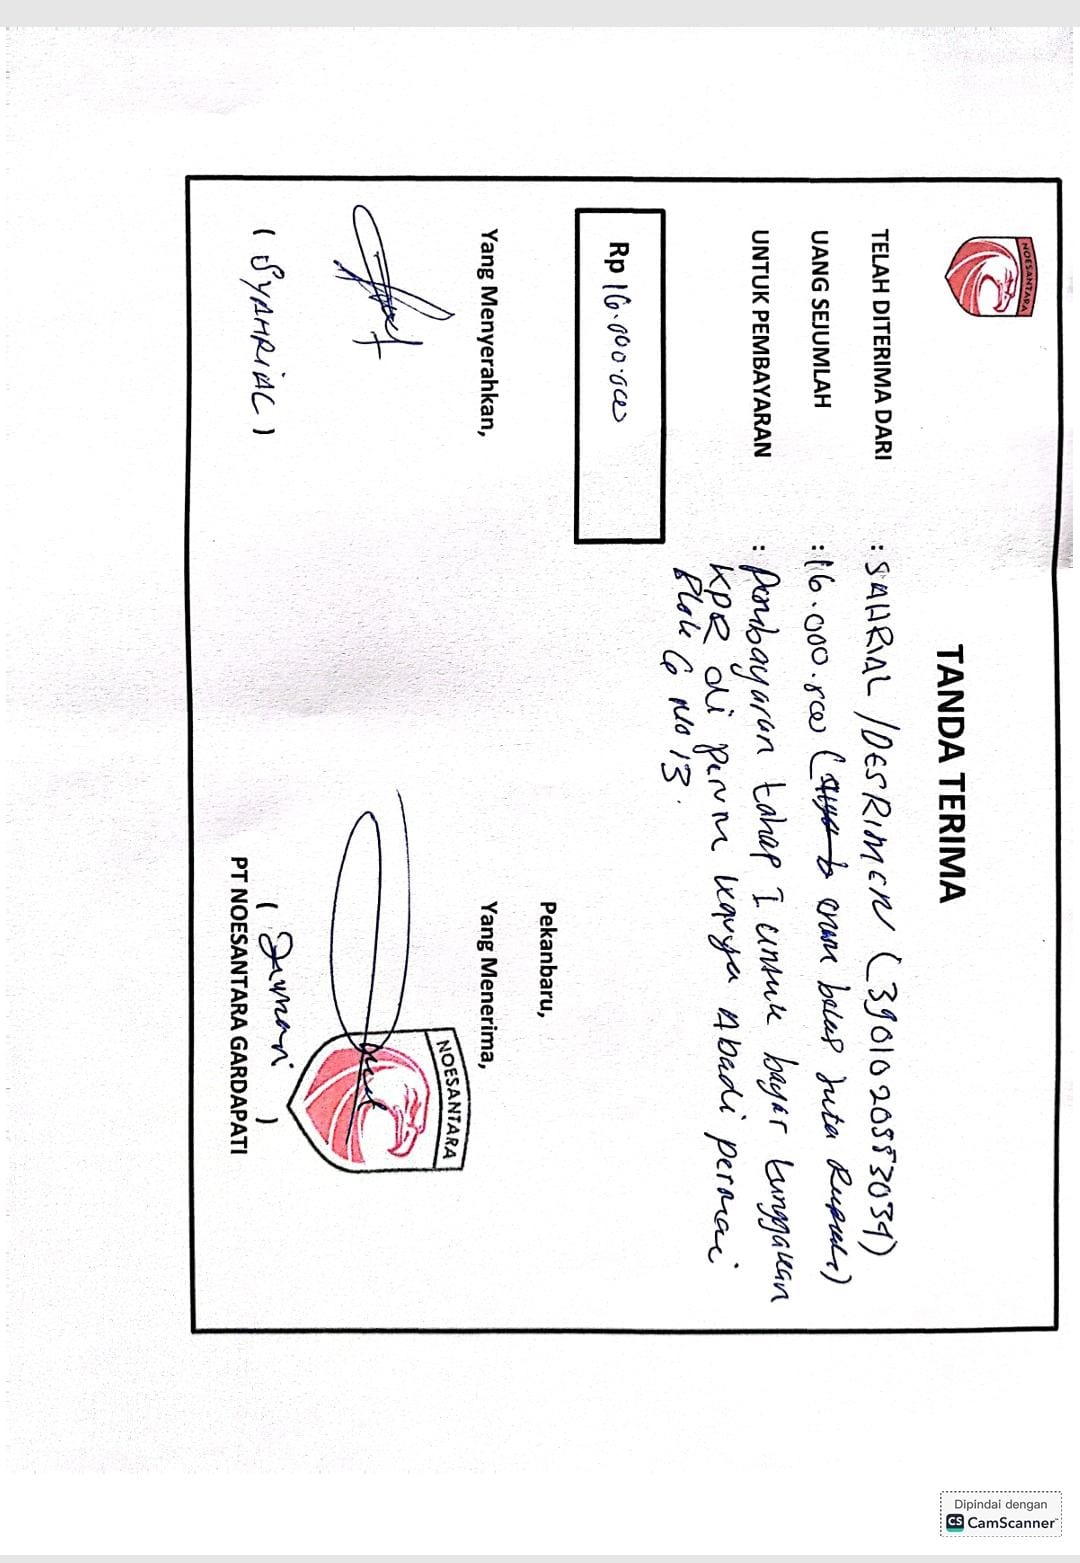 NOESANTARA
TANDA TERIMA
TELAH DITERIMA DARI : SAHRIAL / DESRIMEN (390102055303)
UANG SEJUMLAH : 16.000.000 ( enam belas Juta Rupiah)
UNTUK PEMBAYARAN : Pembayaran tahap I untuk bayar tunggakan
KPR di perum Karya Abadi permai
Blok G No 13.
Rp 16.000.000
Pekanbaru,
Yang Menyerahkan, Yang Menerima,
NOESANTARA
( SYAHRIAL ) ( )
PT NOESANTARA GARDAPATI
Dipindai dengan
CS CamScanner